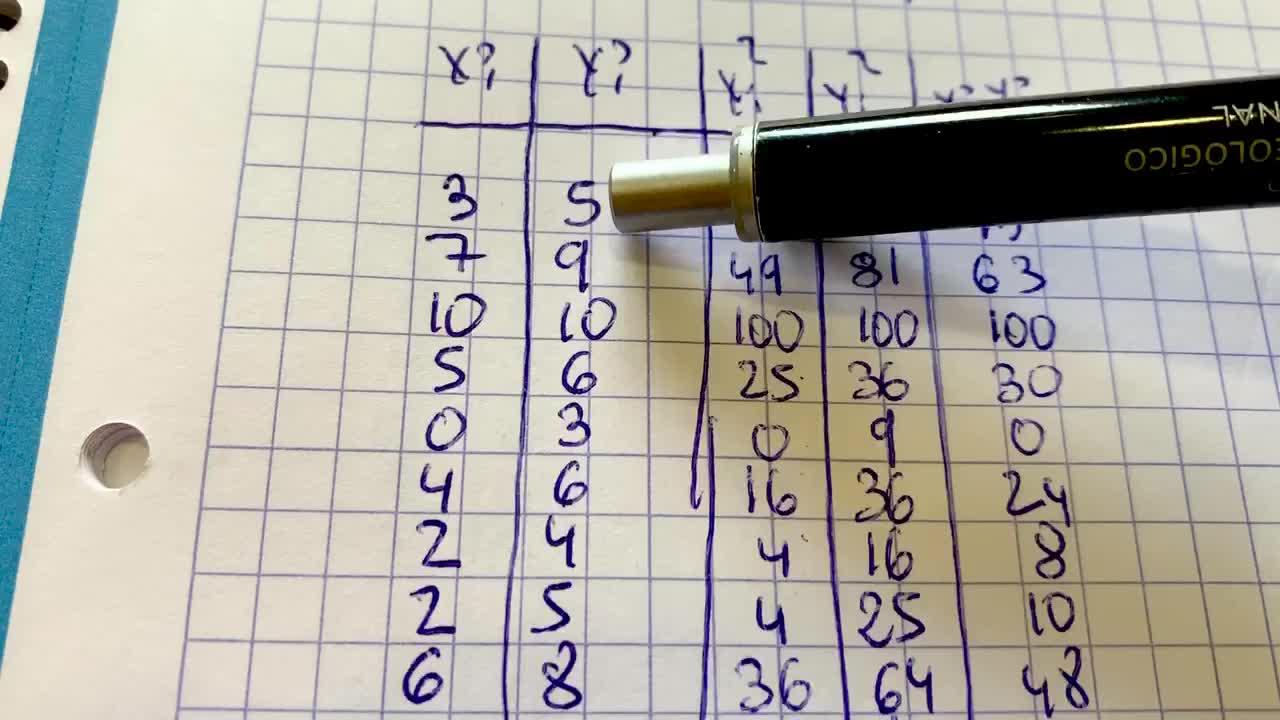 xi yi xi² yi² xi yi
3 5
7 9 49 81 63
10 10 100 100 100
5 6 25 36 30
0 3 0 9 0
4 6 16 36 24
2 4 4 16 8
2 5 4 25 10
6 8 36 64 48